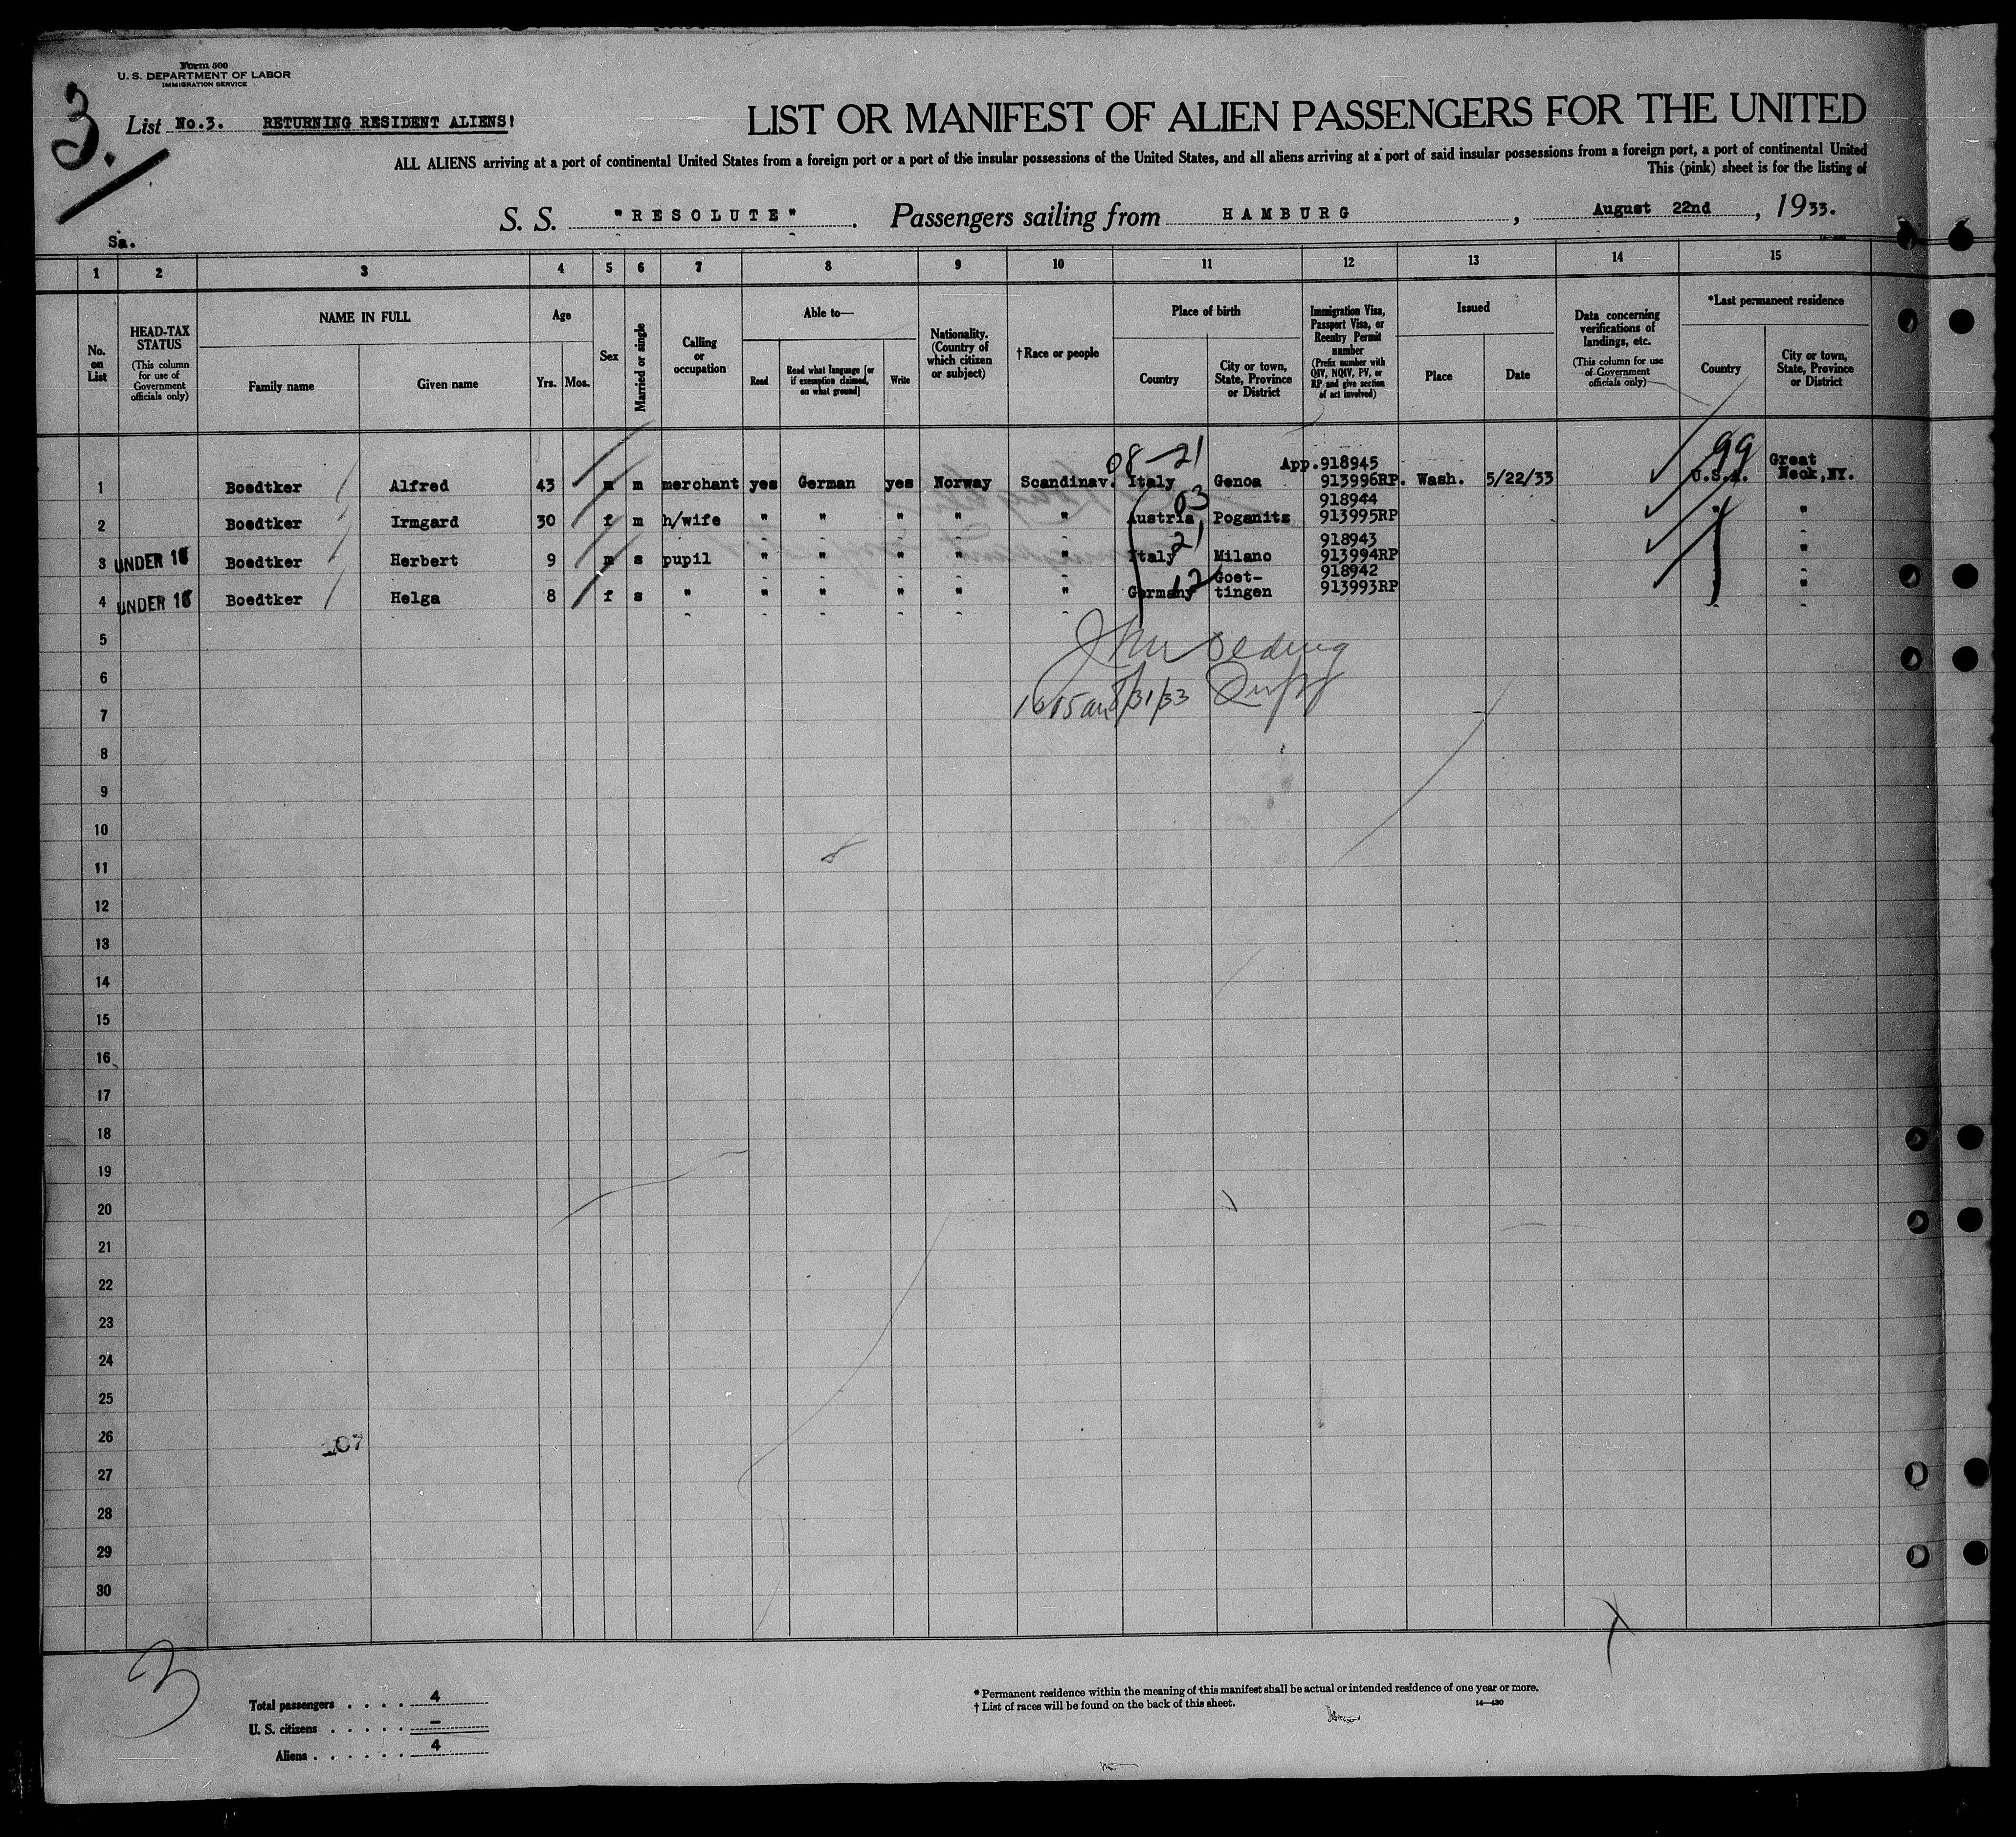 Form 500
U. S. DEPARTMENT OF LABOR
IMMIGRATION SERVICE
3.
List No.3. RETURNING RESIDENT ALIENS!
LIST OR MANIFEST OF ALIEN PASSENGERS FOR THE UNITED
ALL ALIENS arriving at a port of continental United States from a foreign port or a port of the insular possessions of the United States, and all aliens arriving at a port of said insular possessions from a foreign port, a port of continental United
This (pink) sheet is for the listing of
S. S. "RESOLUTE". Passengers sailing from HAMBURG, August 22nd, 1933.
Sa.
1 2 3 4 5 6 7 8 9 10 11 12 13 14 15
No. on List
HEAD-TAX STATUS
(This column for use of Government officials only)
NAME IN FULL
Family name
Given name
Age
Yrs. Mos.
Sex
Married or single
Calling or occupation
Able to—
Read
Read what language [or if exemption claimed, on what ground]
Write
Nationality. (Country of which citizen or subject)
†Race or people
Place of birth
Country
City or town, State, Province or District
Immigration Visa, Passport Visa, or Reentry Permit number
(Prefix number with QIV, NQIV, PV, or RP and give section of act involved)
Issued
Place
Date
Data concerning verifications of landings, etc.
(This column for use of Government officials only)
*Last permanent residence
Country
City or town, State, Province or District
08-21 99
App.918945 Great
1 Boedtker Alfred 43 m m merchant yes German yes Norway Scandinav. Italy Genoa 913996RP. Wash. 5/22/33 U.S.A. Neck,NY.
03 918944
2 Boedtker Irmgard 30 f m h/wife " " " " " Austria Poganitz 913995RP " "
21 918943
3 UNDER 16 Boedtker Herbert 9 m s pupil " " " " " Italy Milano 913994RP "
12 Goet- 918942
4 UNDER 16 Boedtker Helga 8 f s " " " " " " Germany tingen 913993RP "
5
6
8/31/33
7
8
9
10
11
12
13
14
15
16
17
18
19
20
21
22
23
24
25
26
107
27
28
29
30
3
Total passengers . . . . 4
U. S. citizens . . . . . –
Aliens . . . . . . 4
* Permanent residence within the meaning of this manifest shall be actual or intended residence of one year or more.
† List of races will be found on the back of this sheet. 14—430